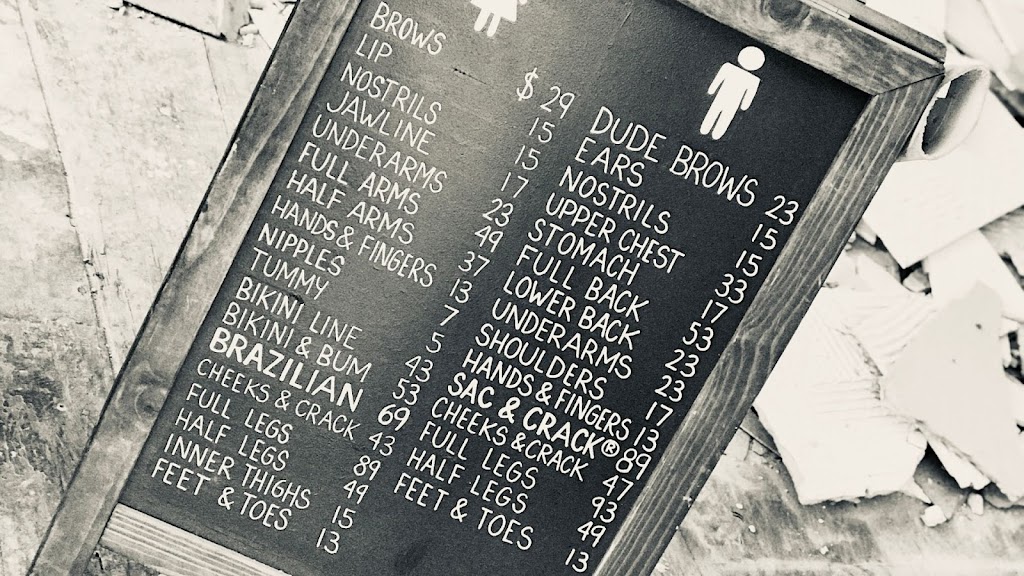 BROWS $ 29
LIP 15
NOSTRILS 15
JAWLINE 17
UNDERARMS 23
FULL ARMS 49
HALF ARMS 37
HANDS & FINGERS 13
NIPPLES 7
TUMMY 5
BIKINI LINE 43
BIKINI & BUM 53
BRAZILIAN 69
CHEEKS & CRACK 43
FULL LEGS 89
HALF LEGS 49
INNER THIGHS 15
FEET & TOES 13
DUDE BROWS 23
EARS 15
NOSTRILS 15
UPPER CHEST 33
STOMACH 17
FULL BACK 53
LOWER BACK 23
UNDERARMS 23
SHOULDERS 17
HANDS & FINGERS 13
SAC & CRACK® 89
CHEEKS & CRACK 47
FULL LEGS 93
HALF LEGS 49
FEET & TOES 13